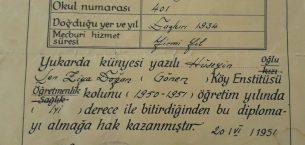 Okul numarası 401
Doğduğu yer ve yıl Taşkın 1934
Mecburi hizmet süresi Yirmi Yıl
Yukarda künyesi yazılı Hüseyin Oğlu kızı
Şen Ziya Doğan (Gönen) Köy Enstitüsü
Öğretmenlik Sağlık kolunu (1950-1951) öğretim yılında
( İyi ) derece ile bitirdiğinden bu diploma-
yı almağa hak kazanmıştır. 20/VI/1951